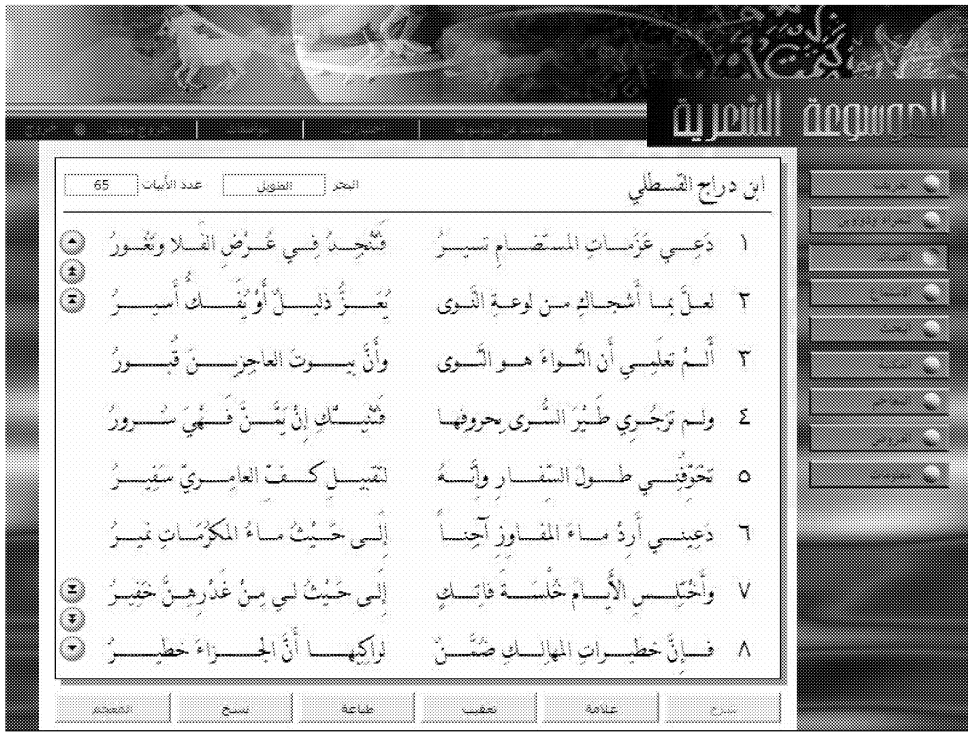 الموسوعة الشعرية
ابن دراج القسطلي البحر الطويل عدد الأبيات 65
١ دَعِي عَزَماتِ المستضامِ تسيرُ فَتُنْجِدُ فِي عُرْضِ الفَلا وتَغُورُ
٢ لعلَّ بما أَشجاكِ من لوعةِ النَّوى يُعَزُّ ذليلٌ أَوْ يُفَكُّ أَسيرُ
٣ أَلَمْ تعلَمِي أَن الثَّواءَ هو التَّوى وأَنَّ بيوتَ العاجِزِينَ قُبورُ
٤ ولم تزجُرِي طَيْرَ السُّرى بِحروفِها فَتُنْبِئْكِ إِنْ يَمَّنَّ فَهْيَ سُرورُ
٥ تخَوِّفُنِي طولَ السِّفارِ وإِنَّهُ لتقبيلِ كفِّ العامِرِيِّ سَفِيرُ
٦ دَعِينِي أَرِدْ ماءَ المفاوِزِ آجِناً إِلَى حَيْثُ ماءُ المكرُمَاتِ نميرُ
٧ وأَخْتَلِسِ الأَيامَ خُلْسَةَ فاتِكٍ إِلَى حَيْثُ لي مِنْ غَدْرِهِنَّ خَفِيرُ
٨ فإِنَّ خطيراتِ المهالِكِ ضُمَّنٌ لراكِبِها أَنَّ الجزاءَ خطيرُ
شرح علامة تعقيب طباعة نسخ المعجم